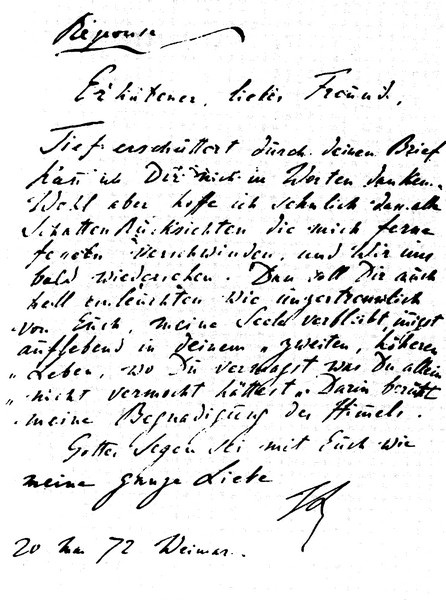 Réponse
Erhabener, lieber Freund,
Tief erschüttert durch deinen Brief
kan̄ ich Dir nicht in Worten danken.
Wohl aber hoffe ich sehnlich dass alle
Schatten Rücksichten die mich ferne
verschwinden, und wir uns
bald wiedersehen. Dan̄ soll Dir auch
hell einleuchten wie unzertrennlich
von Euch, meine Seele verbleibt innigst
auflebend in deinem „zweiten, höheren
„Leben, wo Du vermagst was Du allein
„nicht vermocht hättest". Darin beruht
meine Begnadigung des Himels.
Gottes Segen sei mit Euch wie
meine ganze Liebe
20 Mai 72 Weimar.